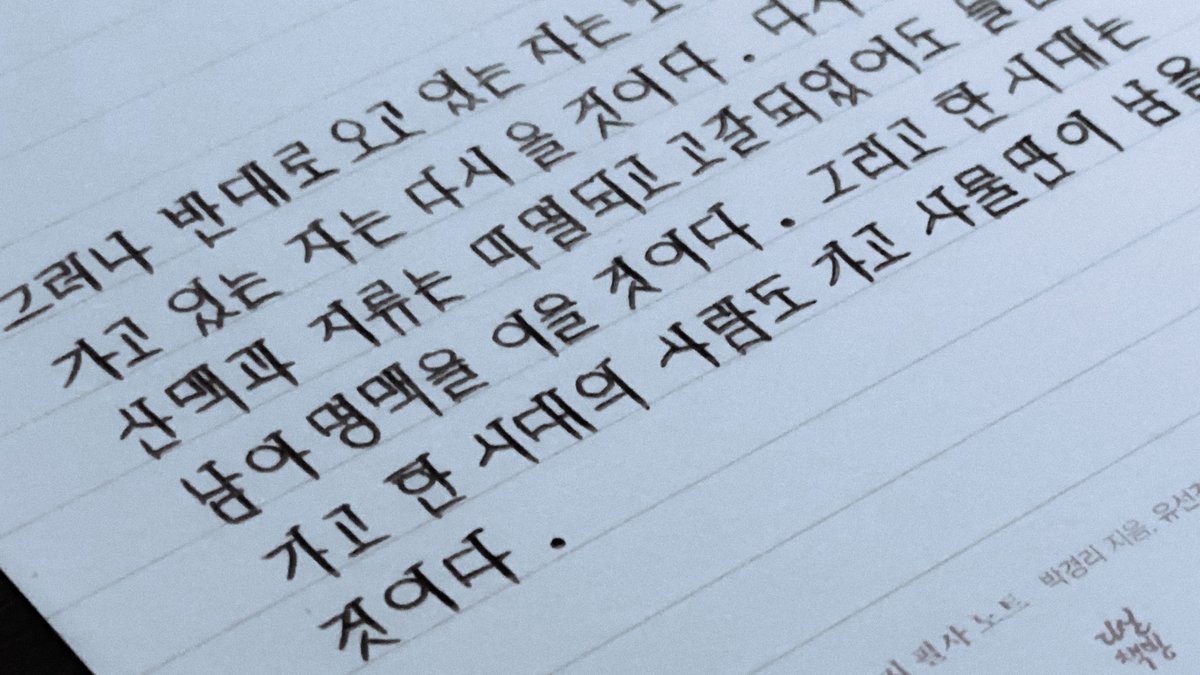 그러나 반대로 오고 있는 자는
가고 있는 자는 다시 올 것이다. 다시
산맥과 지류는 마멸되고 고갈되었어도
남아 명맥을 이을 것이다. 그리고 한 시대는
가고 한 시대의 사람도 가고 사물만이 남을
것이다.
필사 노트 박경리 지음,
다산
책방